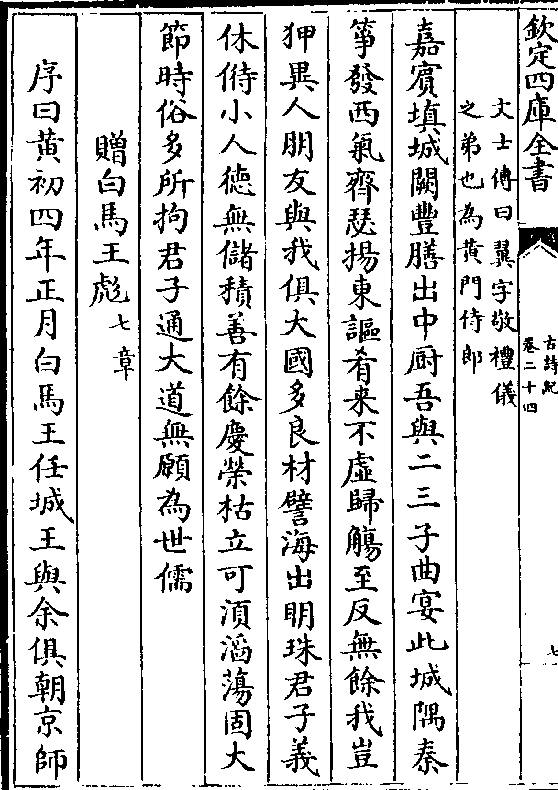 欽定四庫全書
古詩紀
卷二十四
七
文士傳曰翼字敬禮儀
之弟也為黄門侍郎
嘉賓填城闕豐膳出中厨吾與二三子曲宴此城隅秦
箏發西氣齊瑟揚東謳肴来不虛歸觴至反無餘我豈
狎異人朋友與我俱大國多良材譬海出明珠君子義
休偫小人德無儲積善有餘慶榮枯立可湏滔蕩固大
節時俗多所拘君子通大道無願為世儒
贈白馬王彪七章
序曰黄初四年正月白馬王任城王與余俱朝京師